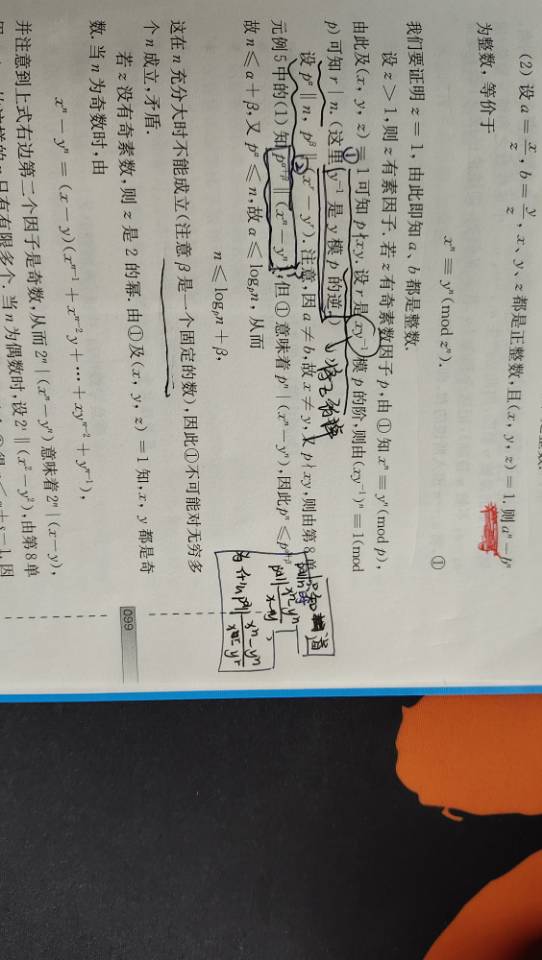 (2) 设 a = x/z, b = y/z, x、y、z 都是正整数, 且(x, y, z) = 1. 则 aⁿ − bⁿ
为整数, 等价于
xⁿ ≡ yⁿ(mod zⁿ). ①
我们要证明 z = 1, 由此即知 a、b 都是整数.
设 z > 1, 则 z 有素因子. 若 z 有奇素数因子 p, 由①知 xⁿ ≡ yⁿ(mod p),
由此及(x, y, z) = 1 可知 p∤xy. 设 r 是 xy⁻¹ 模 p 的阶, 则由(xy⁻¹)ⁿ ≡ 1(mod
p)可知 r | n. (这里 y⁻¹ 是 y 模 p 的逆.)
设 p^α ‖ n, p^β ‖ (x^r − y^r). 注意, 因 a ≠ b, 故 x ≠ y, 又 p∤xy, 则由第 8 单
元例 5 中的(1)知 p^(α+β) ‖ (xⁿ − yⁿ), 但①意味着 pⁿ | (xⁿ − yⁿ), 因此 pⁿ ≤ p^(α+β)
故 n ≤ α + β, 又 p^α ≤ n, 故 α ≤ log_p n, 从而
n ≤ log_p n + β,
这在 n 充分大时不能成立(注意 β 是一个固定的数), 因此①不可能对无穷多
个 n 成立, 矛盾.
若 z 没有奇素数, 则 z 是 2 的幂. 由①及(x, y, z) = 1 知, x, y 都是奇
数. 当 n 为奇数时, 由
xⁿ − yⁿ = (x − y)(xⁿ⁻¹ + xⁿ⁻²y + … + xyⁿ⁻² + yⁿ⁻¹),
并注意到上式右边第二个因子是奇数, 从而 2ⁿ | (xⁿ − yⁿ)意味着 2ⁿ | (x − y),
只有有限多个. 当 n 为偶数时, 设 2^s ‖ (x² − y²), 由第 8 单
099